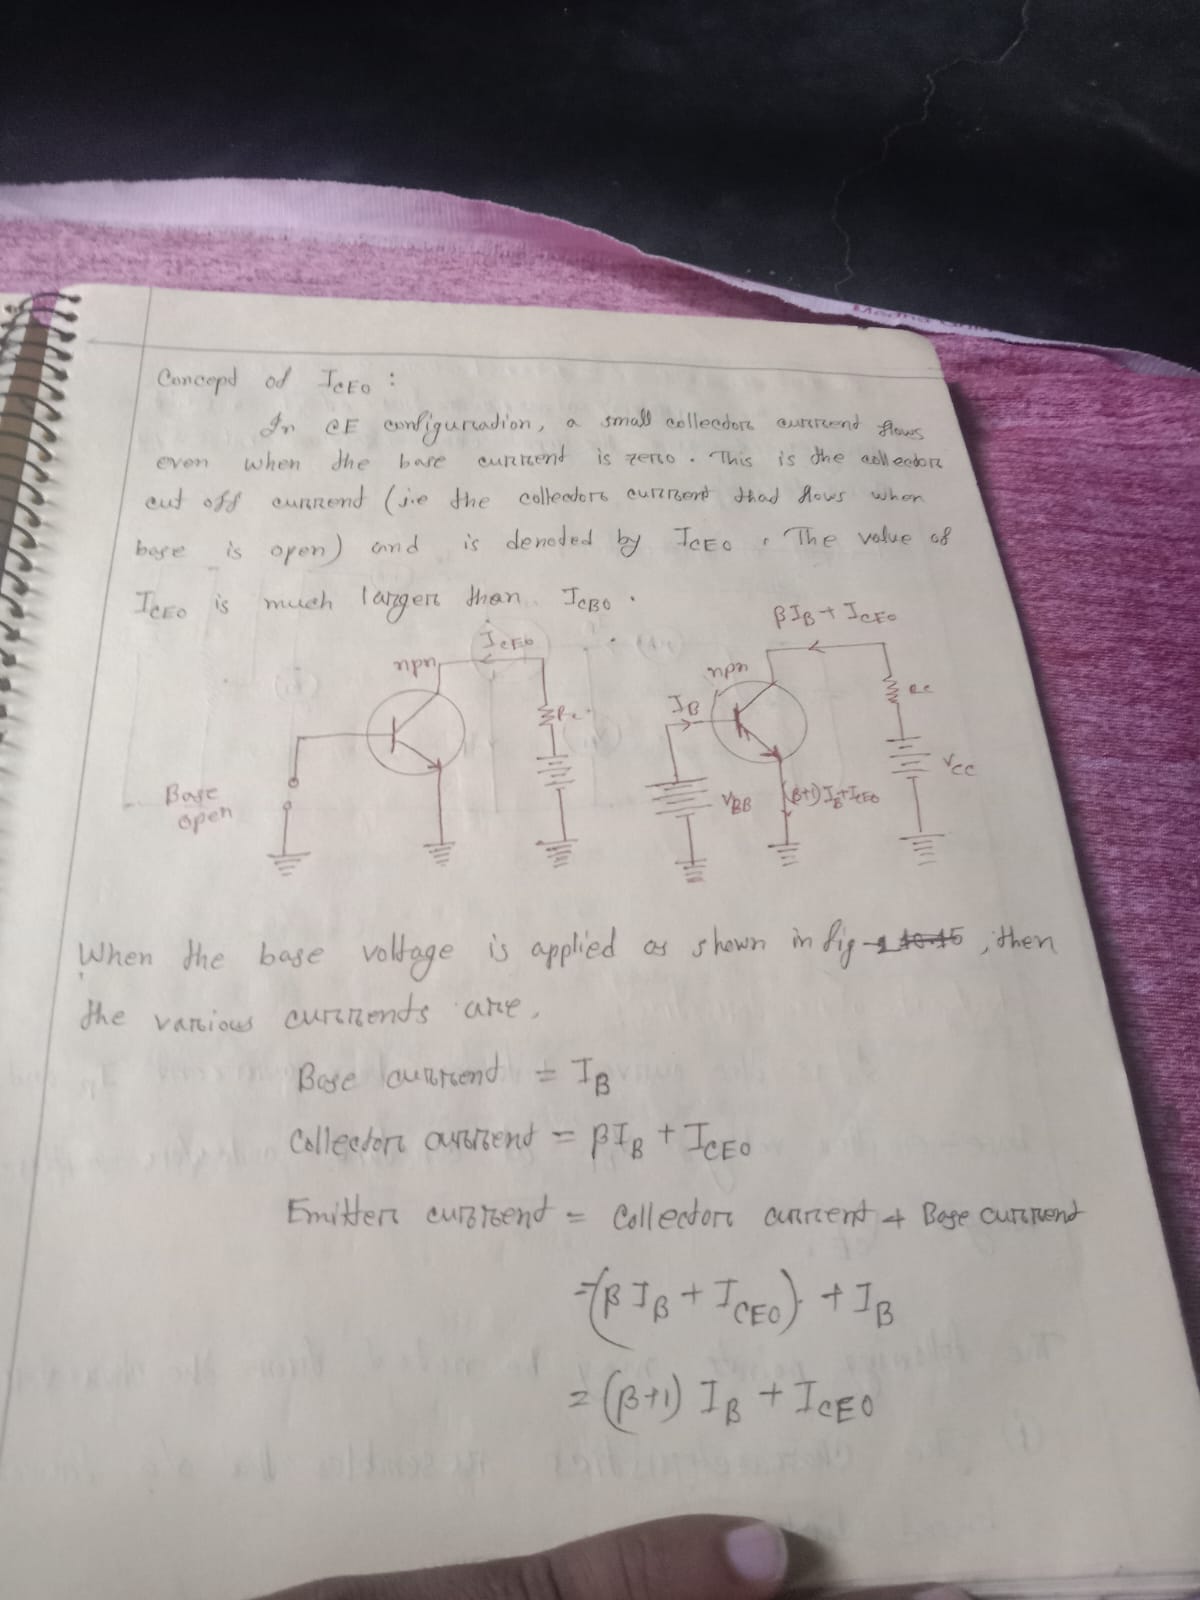 Concept of ICEO :
In CE configuration, a small collector current flows
even when the base current is zero. This is the collector
cut off current (i.e the collector current that flows when
base is open) and is denoted by ICEO. The value of
ICEO is much larger than ICBO.
ICEO
npn
Rc
Base
open
βIB + ICEO
npn
IB
Rc
VCC
VBB
(β+1) IB+ICEO
When the base voltage is applied as shown in fig-1 10.15, then
the various currents are,
Base current = IB
Collector current = βIB + ICEO
Emitter current = Collector current + Base current
=(β IB + ICEO) + IB
= (β+1) IB + ICEO